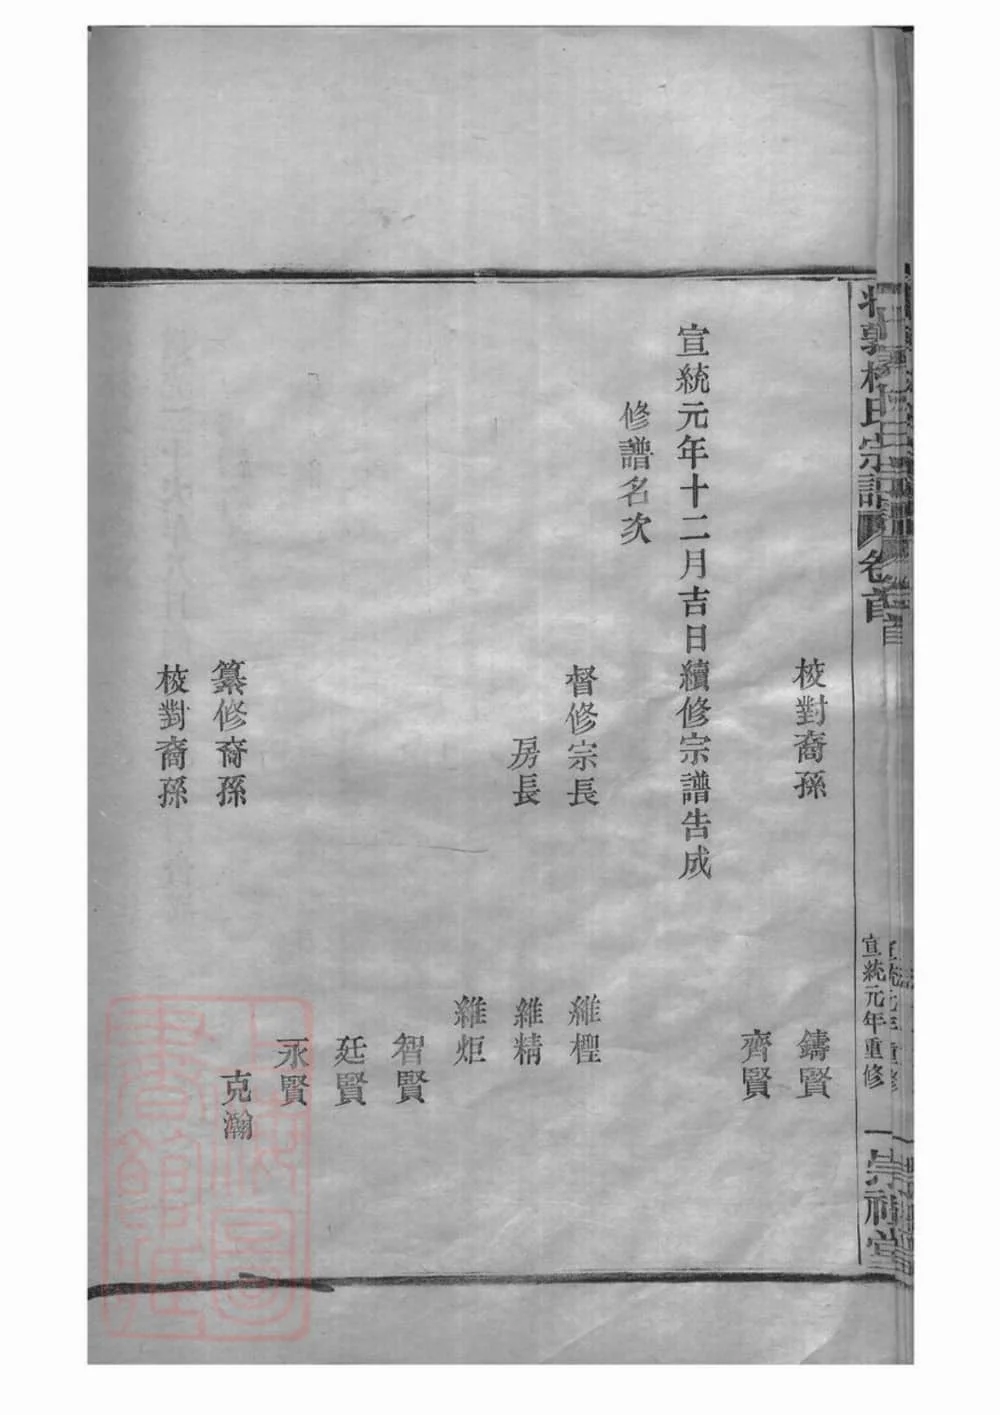 氏宗譜 卷首 宣統元年重修 一
校對裔孫 鑄賢
齊賢
宣統元年十二月吉日續修宗譜告成
修譜名次
督修宗長 維樫
房長 維精
維炬
智賢
廷賢
永賢
纂修裔孫 克瀚
校對裔孫